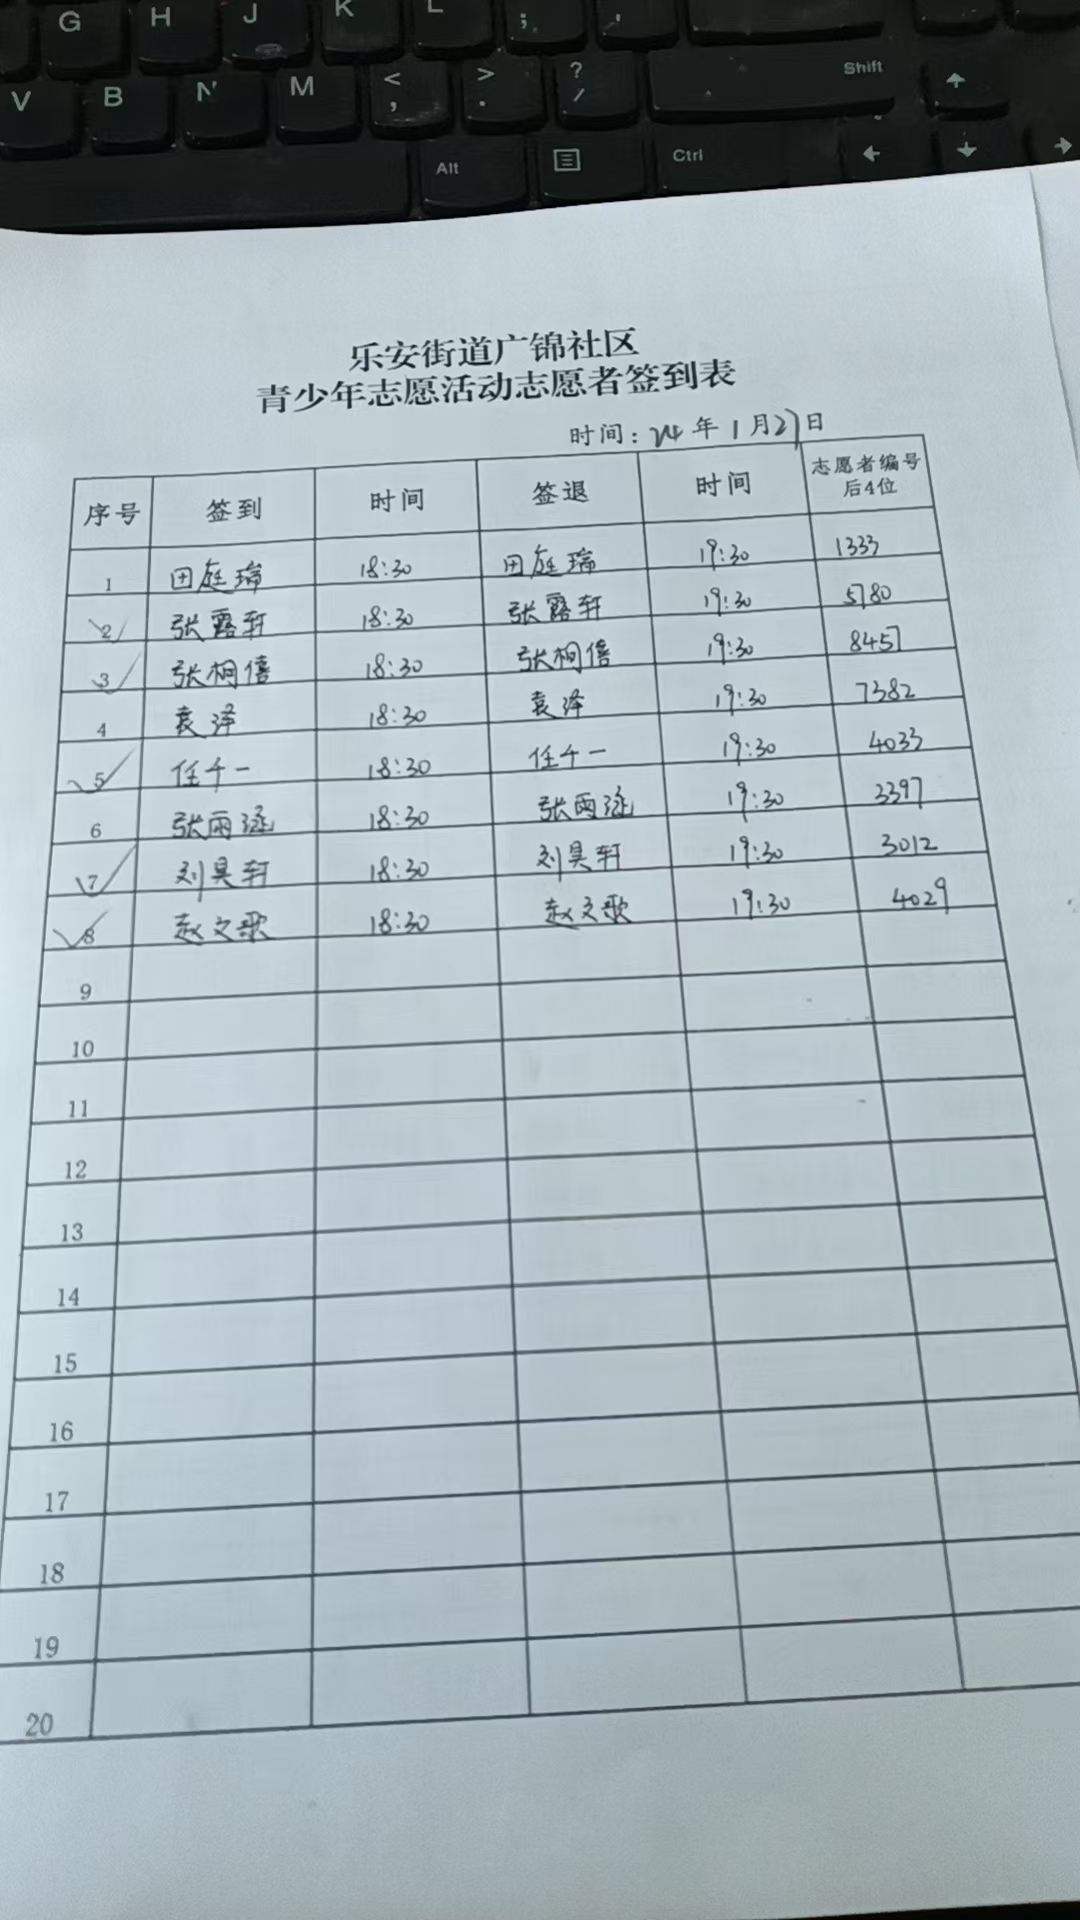 G H J K L ; '
V B N M < , > . ? / Shift
Alt Ctrl
乐安街道广锦社区
青少年志愿活动志愿者签到表
时间：24年1月27日
序号 签到 时间 签退 时间 志愿者编号后4位
1 田庭瑞 18:30 田庭瑞 19:30 1333
2 张露轩 18:30 张露轩 19:30 5780
3 张桐僖 18:30 张桐僖 19:30 8457
4 袁泽 18:30 袁泽 19:30 7382
5 任千一 18:30 任千一 19:30 4033
6 张雨涵 18:30 张雨涵 19:30 3397
7 刘昊轩 18:30 刘昊轩 19:30 3012
8 赵文歌 18:30 赵文歌 19:30 4029
9
10
11
12
13
14
15
16
17
18
19
20